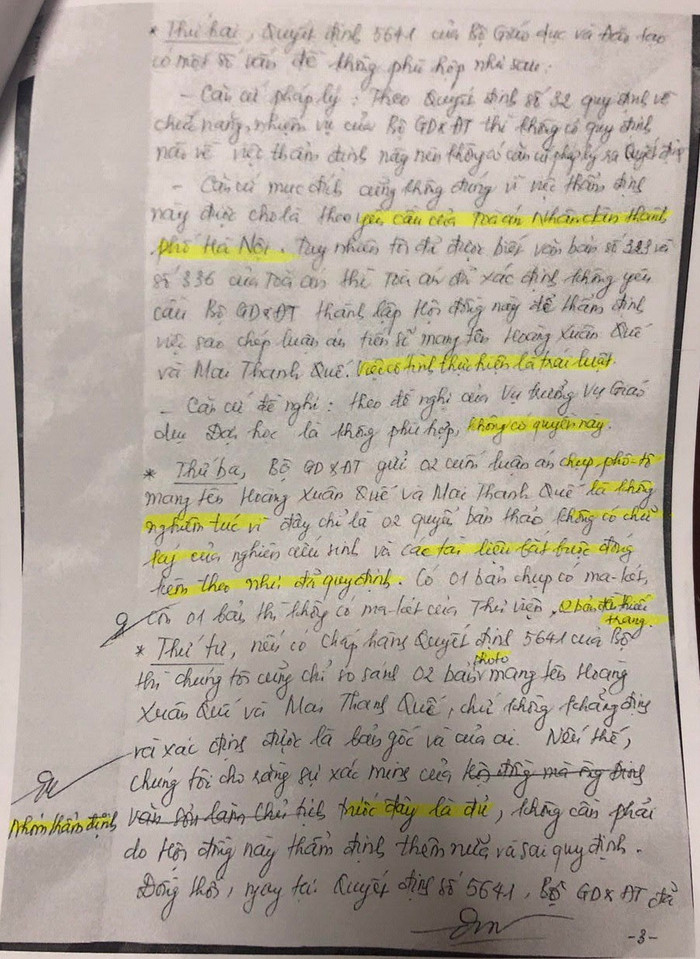 * Thứ hai, Quyết định 5641 của Bộ Giáo dục và Đào tạo
có một số vấn đề không phù hợp như sau:
- Căn cứ pháp lý: Theo Quyết định số 32 quy định về
chức năng, nhiệm vụ của Bộ GD&ĐT thì không có quy định
nào về việc thẩm định này nên không có căn cứ pháp lý ra Quyết định
- Căn cứ mục đích cũng không đúng vì việc thẩm định
này được cho là theo yêu cầu của Toà án Nhân dân thành
phố Hà Nội. Tuy nhiên tôi đã được biết văn bản số 323 và
số 336 của Toà án thì Toà án đã xác định không yêu
cầu Bộ GD&ĐT thành lập Hội đồng này để thẩm định
việc sao chép luận án tiến sĩ mang tên Hoàng Xuân Quế
và Mai Thanh Quế. Việc cố tình thực hiện là trái luật.
- Căn cứ đề nghị: theo đề nghị của Vụ trưởng Vụ Giáo
dục Đại học là không phù hợp, không có quyền này.
* Thứ ba, Bộ GD&ĐT gửi 02 cuốn luận án chụp phô-tô
mang tên Hoàng Xuân Quế và Mai Thanh Quế là không
nghiêm túc vì đây chỉ là 02 quyển bản thảo không có chữ
ký của nghiên cứu sinh và các tài liệu bắt buộc đóng
kèm theo như đã quy định. Có 01 bản chụp có ma-két,
còn 01 bản thì không có ma-két của Thư viện, 2 bản đều thiếu
trang.
* Thứ tư, nếu có chấp hành Quyết định 5641 của Bộ
thì chúng tôi cũng chỉ so sánh 02 bản photo mang tên Hoàng
Xuân Quế và Mai Thanh Quế, chứ không khẳng định
và xác định được là bản gốc và của ai. Nếu thế,
chúng tôi cho rằng sự xác minh của hội đồng mà ông Đinh
Nhóm thẩm định văn sơn làm Chủ tịch trước đây là đủ, không cần phải
do Hội đồng này thẩm định thêm nữa và sai quy định.
Đồng thời, ngay tại Quyết định số 5641, Bộ GD&ĐT đã
-3-